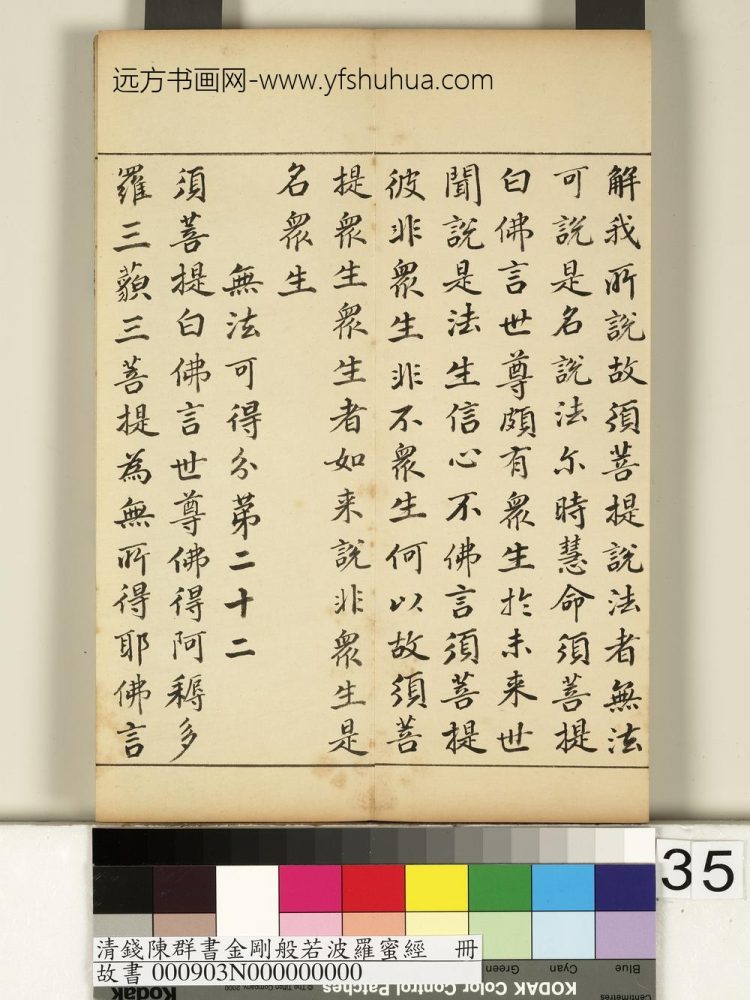 远方书画网-www.yfshuhua.com
解我所說故須菩提說法者無法
可說是名說法尒時慧命須菩提
白佛言世尊頗有眾生扵未来世
聞說是法生信心不佛言須菩提
彼非眾生非不眾生何以故須菩
提眾生眾生者如来說非眾生是
名眾生
無法可得分苐二十二
須菩提白佛言世尊佛得阿耨多
羅三藐三菩提為無所得耶佛言
35
清錢陳群書金剛般若波羅蜜經 冊
故書 000903N000000000
Green
Cyan
Blue
Kodak
KODAK Color Control Patches
Centimetres